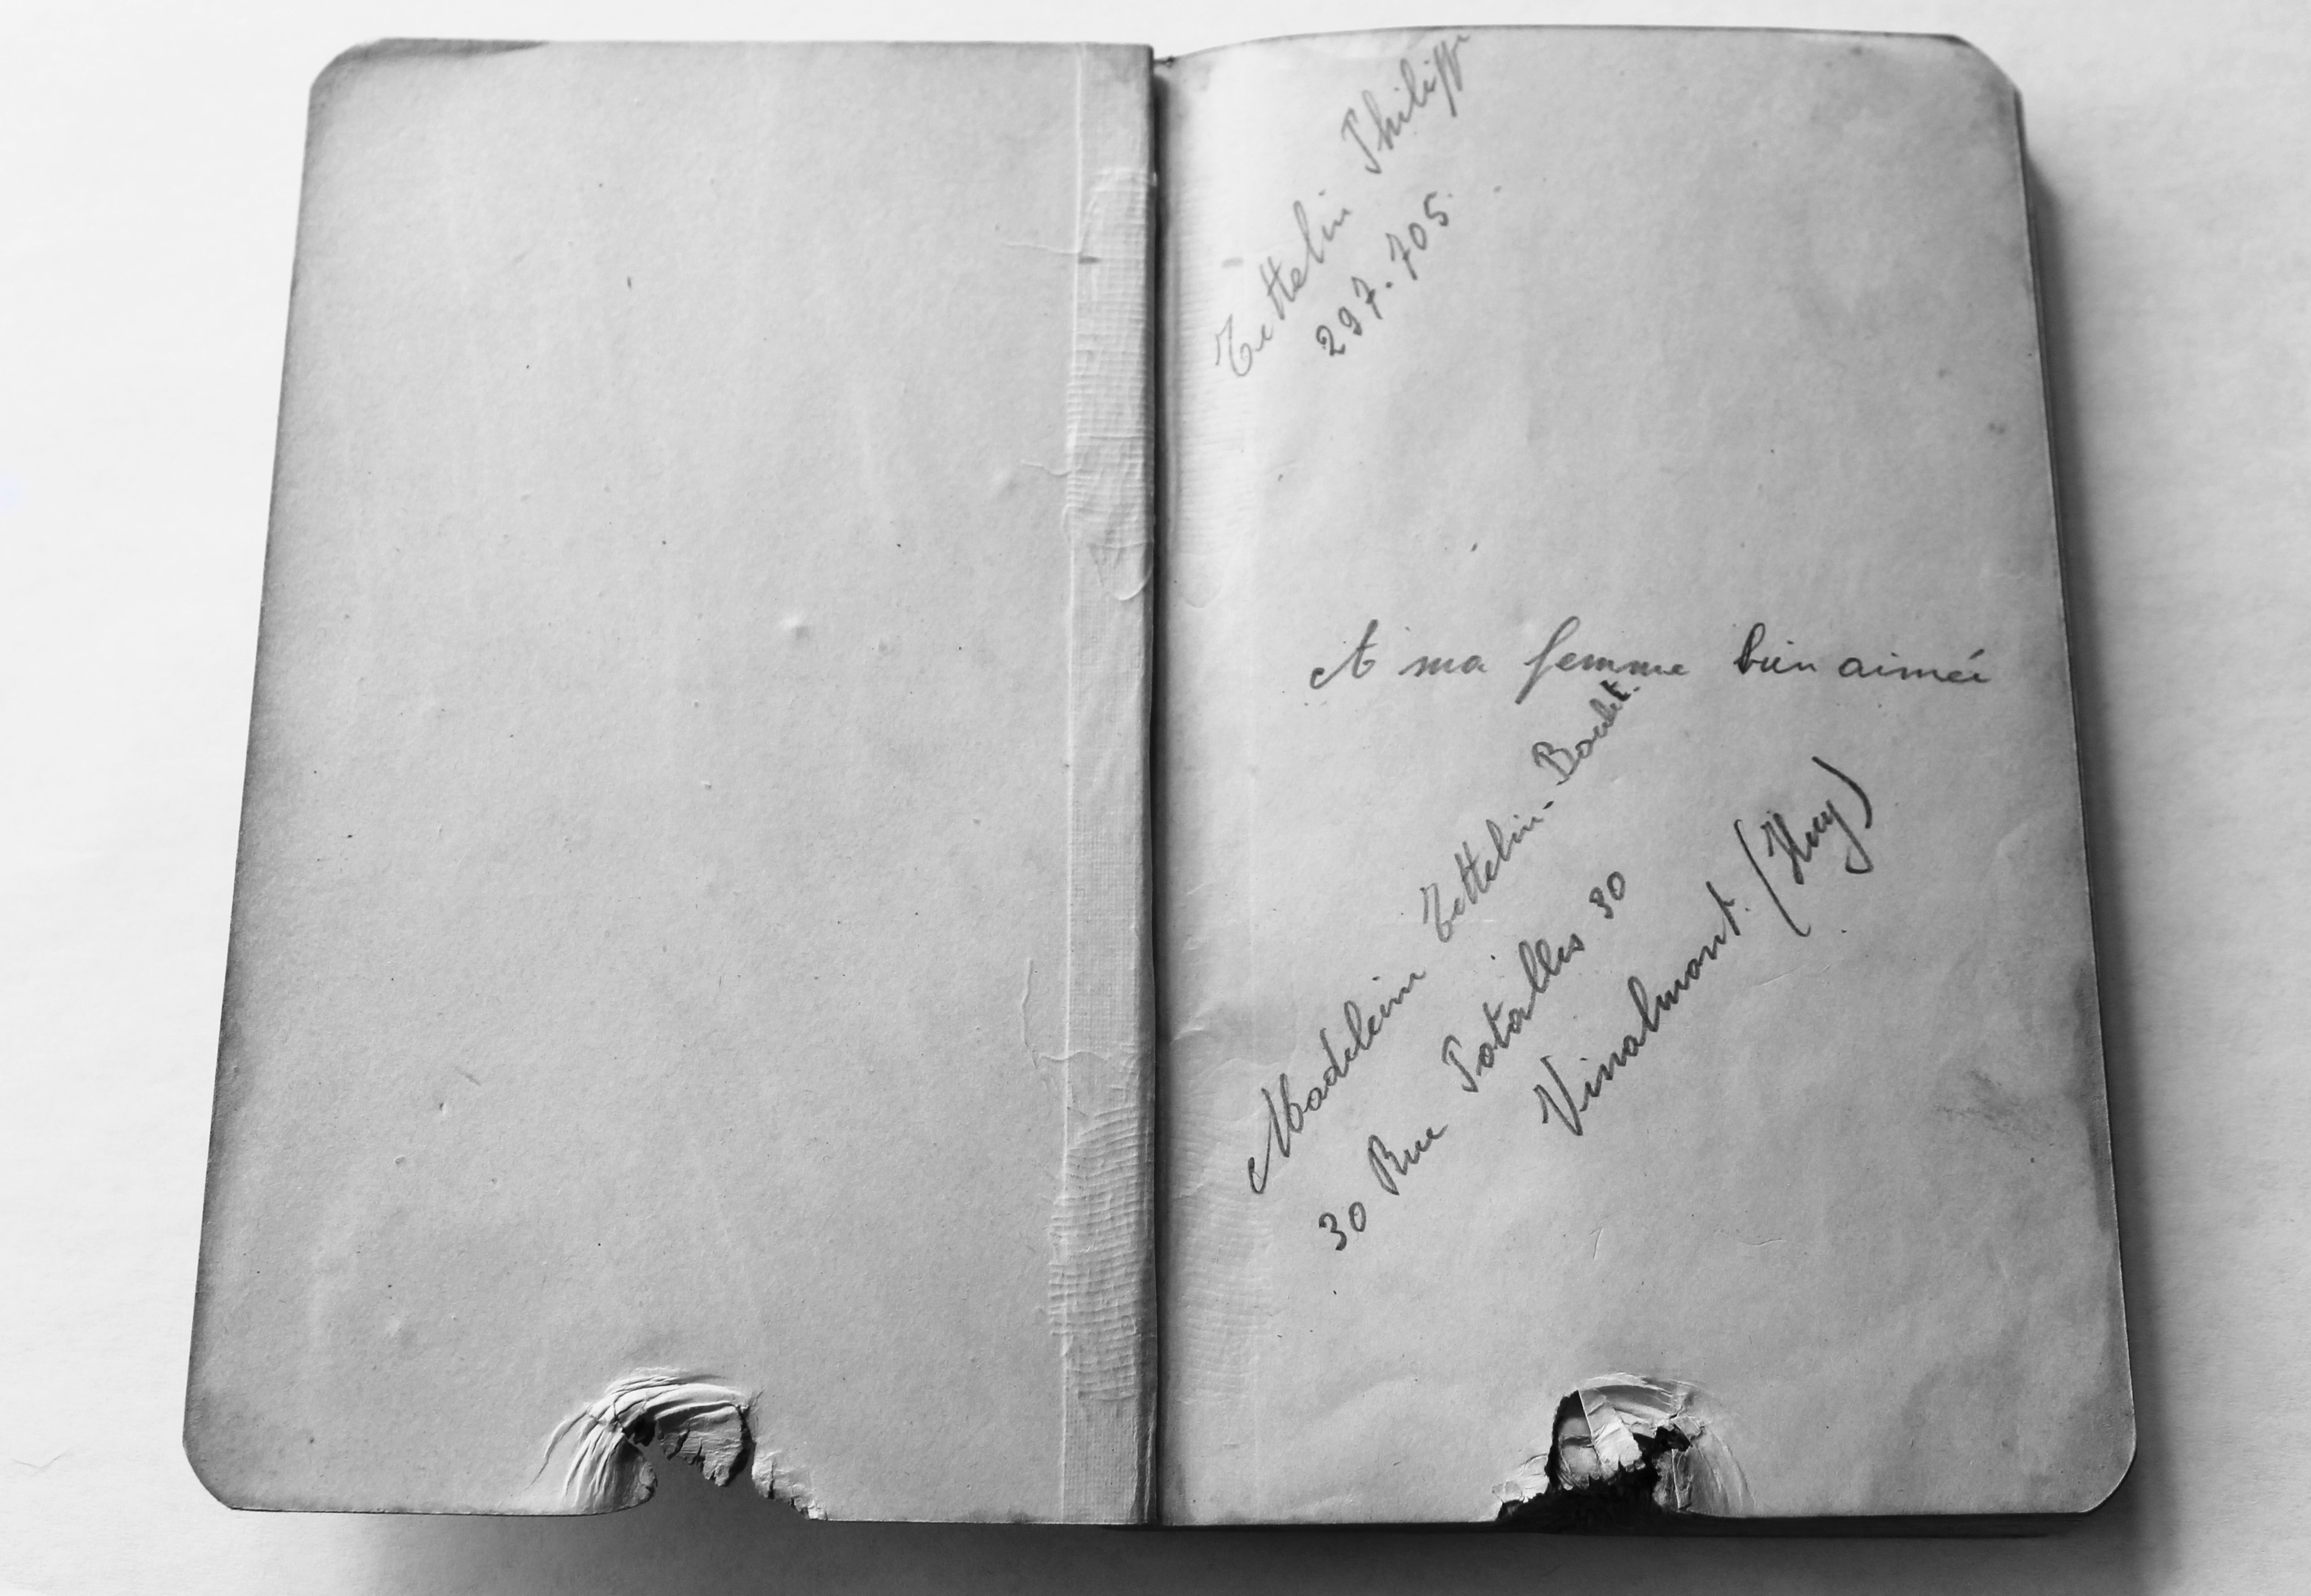 Tettelin Philippe
297.705.
A ma femme bien aimée
Madeleine Tettelin-Boudet.
30 Rue Potalles 30
Vinalmont. (Huy)